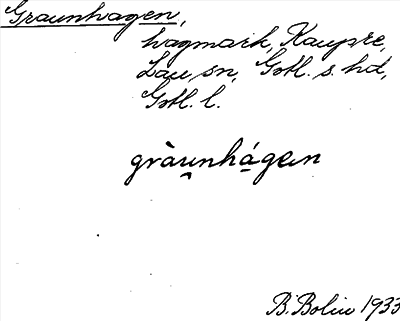 Graunhagen,
hagmark, Kaupre,
Lau sn, Gotl. s. hd,
Gotl. l.
gràu̯nhágen
B. Bolin 1933